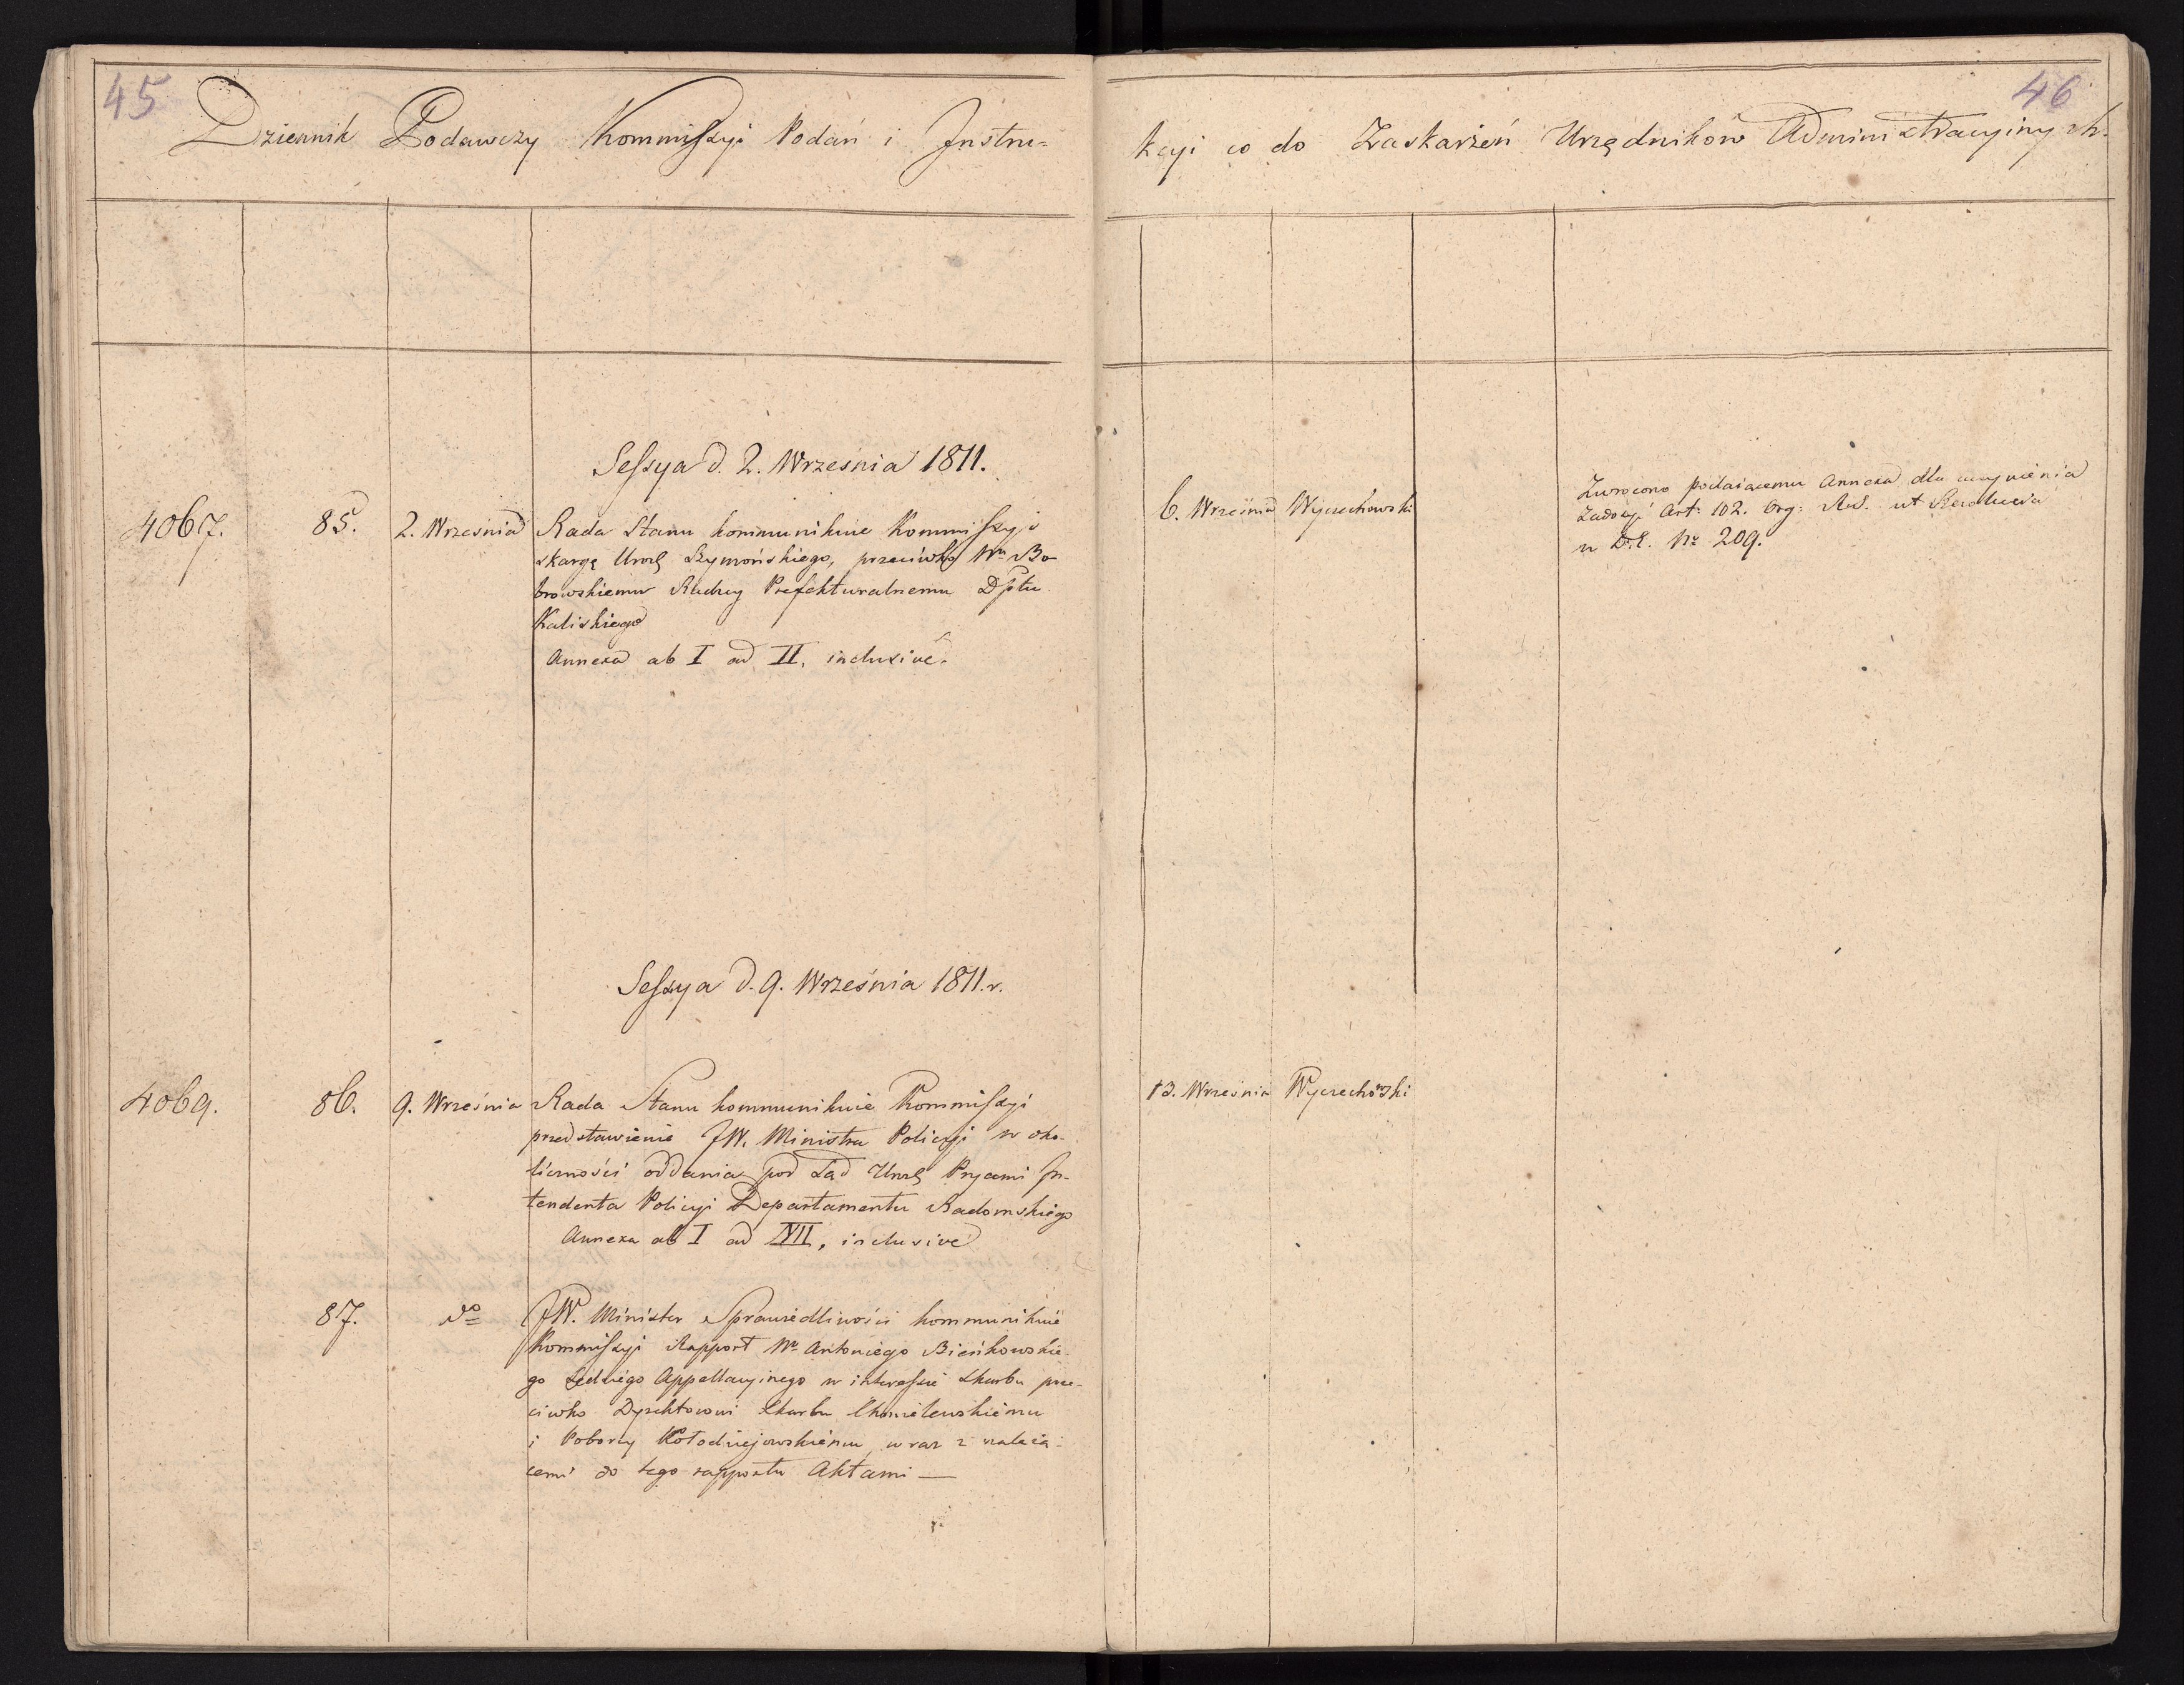 45
46
Dziennik Podawczy Kommissyi Podań i Instru=
kcyi co do Zaskarżeń Urzędników Administracyinych.
Sessya d. 2. Września 1811.
4067. 85. 2. Września Rada Stanu kommunikuie Kommissyi
skargę Urodz Szymońskiego, przeciwko Wu Bo-
browskiemu Radcy Prefekturalnemu Dptu
Kaliskiego
Annexa ab I ad II. inclusive.
6. Września Wyczechowski
Zwrocono podaiącemu Annexa dla uczynienia
zadosyć Art: 102. Org: Ad. ut Rezolucya
w D.E. No 209.
Sessya d. 9. Września 1811. r.
4069. 86. 9. Września Rada Stanu kommunikuie Kommissyi
przedstawienie JW. Ministra Policyi w oko-
liczności oddania pod Sąd Urodz Pryami In-
tendenta Policyi Departamentu Radomskiego
Annexa ab I ad XVII, inclusive
13. Września Wyczechowski
87. do JW. Minister Sprawiedliwości kommunikuie
Kommissyi Rapport Wo Antoniego Bieńkowskie-
go Sędziego Appellacyinego w interessie Skarbu prze-
ciwko Dyrektorowi Skarbu Chomelewskiemu
i Poborcy Kołodziejowskiemu, wraz z należą-
cemi do tego rapportu Aktami —